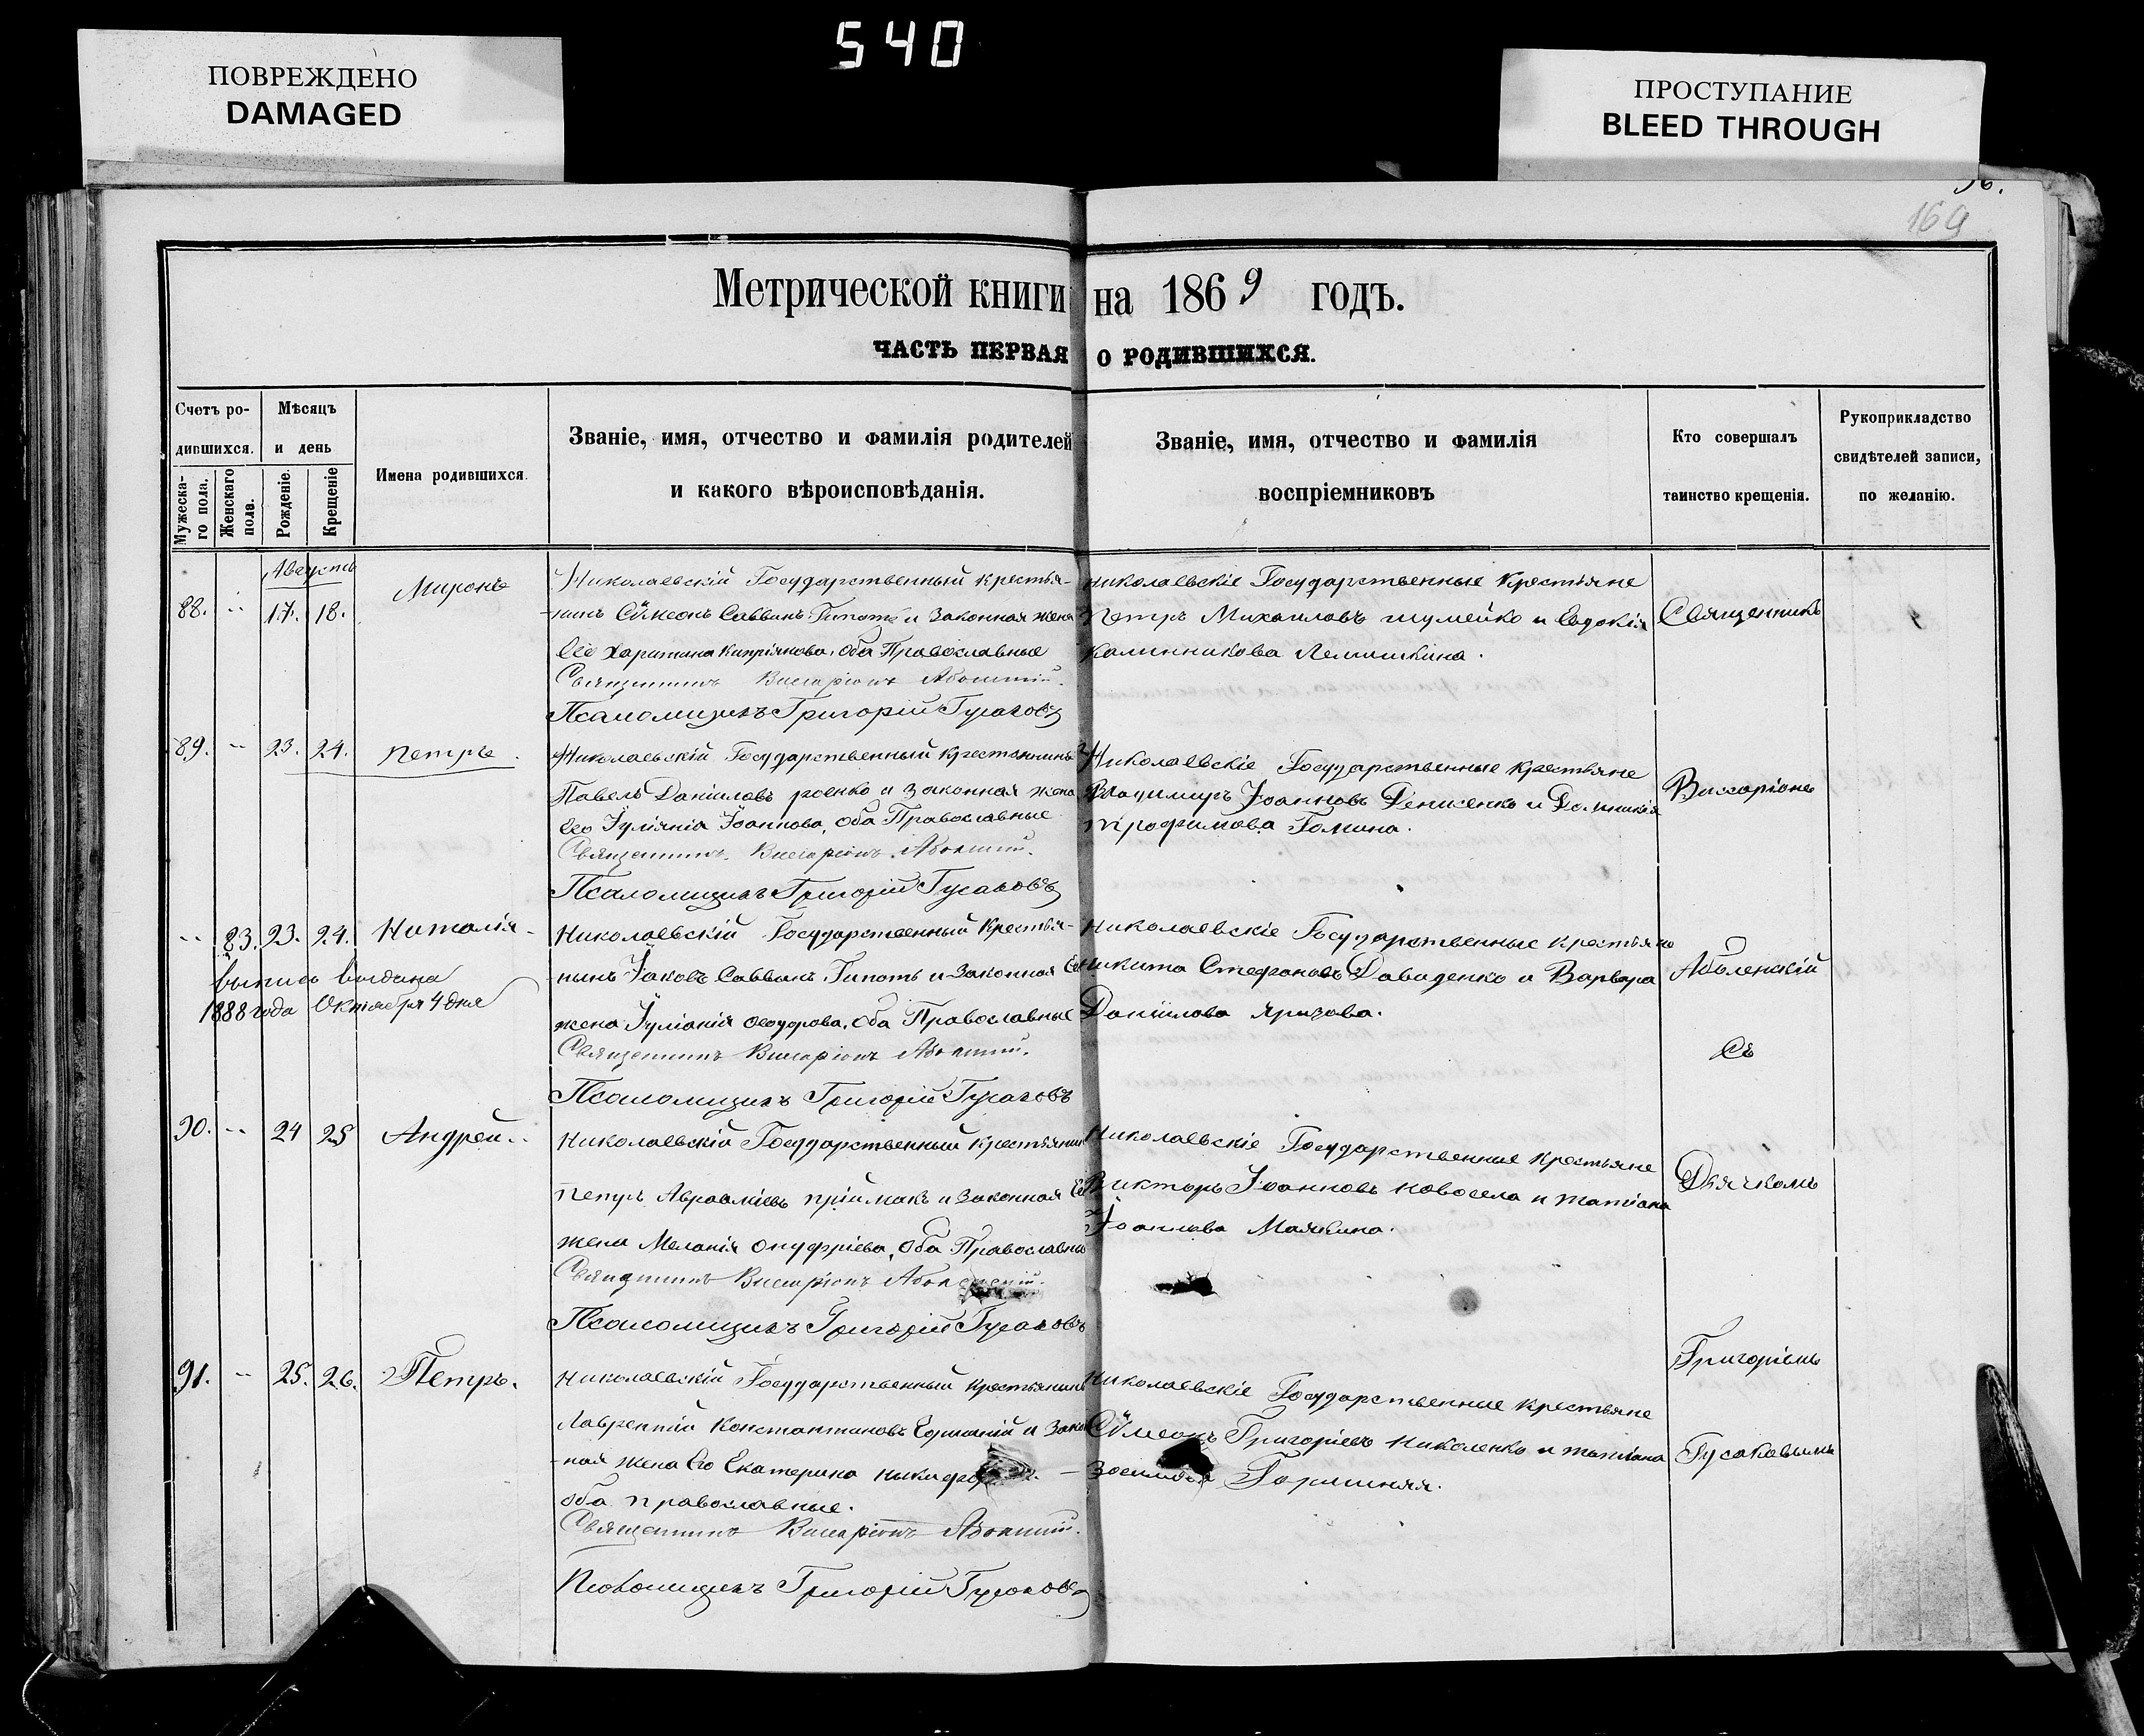 540
ПОВРЕЖДЕНО
DAMAGED
ПРОСТУПАНИЕ
BLEED THROUGH
169
Метрической книги на 1869 годъ.
ЧАСТЬ ПЕРВАЯ О РОДИВШИХСЯ.
Счетъ родившихся.
Мужескаго пола.
Женскаго пола.
Мѣсяцъ и день
Рожденіе.
Крещеніе
Имена родившихся.
Званіе, имя, отчество и фамилія родителей
и какого вѣроисповѣданія.
Званіе, имя, отчество и фамилія
воспріемниковъ
Кто совершалъ
таинство крещенія.
Рукоприкладство
свидѣтелей записи,
по желанію.
Августъ
88. 17. 18. Миронъ
Николаевскій Государственный крестья-
-нинъ Сѵмеонъ Саввинъ Гипоть и законная жена
Его Харитина Кипріянова, оба Православные
Священникъ Виссаріонъ
Псаломщикъ Григорій Гусаковъ
Николаевскіе Государственные крестьяне
Петръ Михаиловъ шумейко и Евдокія
Калинникова Лемешкина.
89. 23. 24. Петръ.
Николаевскій Государственный крестьянинъ
Павелъ Даніиловъ роенко и законная жена
Его Іуліянія Іоаннова, оба Православные
Священникъ Виссаріонъ
Псаломщикъ Григорій Гусаковъ
Николаевскіе Государственные крестьяне
Владимиръ Іоанновъ Денисенко и Домникія
трофимова Гомина.
83. 23. 24. Наталія
выпись выдана
1888 года Октября 4 дня
Николаевскій Государственный крестья-
-нинъ Іаковъ Саввинъ Гипоть и законная Его
жена Іуліанія Ѳеодорова, оба Православные
Священникъ Виссаріонъ
Псаломщикъ Григорій Гусаковъ
Николаевскіе Государственные крестьяне
никита Стефановъ Давиденко и Варвара
Даніилова
90. 24 25 Андрей
Николаевскій Государственный крестьянинъ
Петръ Авраамiевъ пріймакъ и законная Его
жена Меланія онуфріева, оба Православные
Священникъ Виссаріонъ
Псаломщикъ Григорій Гусаковъ
Николаевскіе Государственные крестьяне
Викторъ Іоанновъ новосела и татіана
Іоаннова
91. 25. 26. Петръ.
Николаевскій Государственный крестьянинъ
Лаврентій Константиновъ и закон
-ная жена Его Екатерина
оба православные.
Священникъ Виссаріонъ
Псаломщикъ Григорій Гусаковъ
Николаевскіе Государственные крестьяне
Сѵмеонъ Григоріевъ николенко и татіана
Горишняя.
Священникъ
Виссаріонъ
Аболенскій
Съ
Дьячкомъ
Григоріемъ
Гусаковымъ